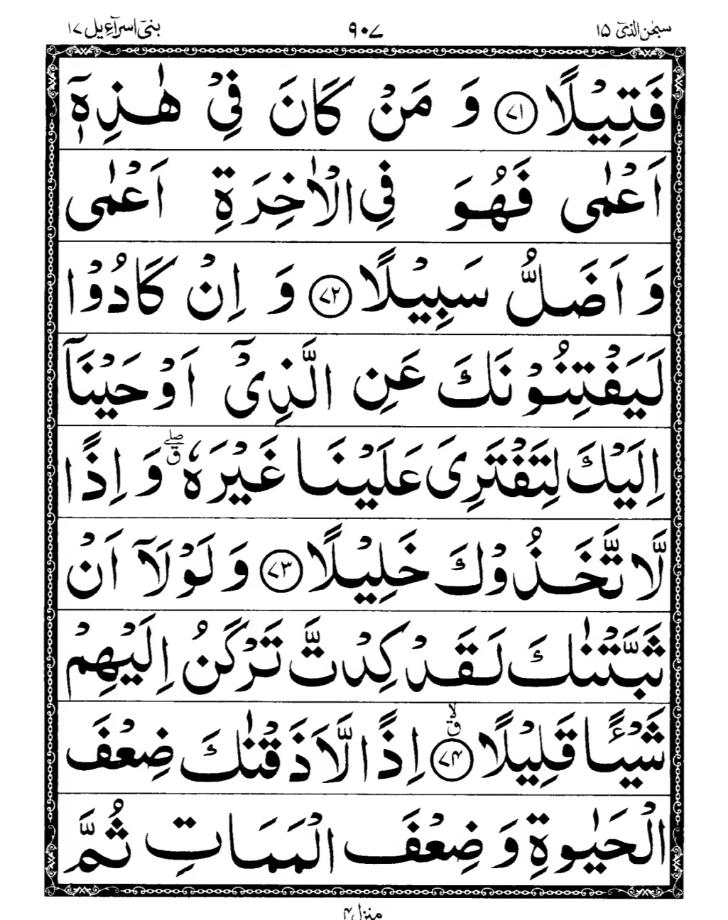 سبحٰن الذیٓ ۱۵ ۹۰۷ بنیٓ اسرآءیل ۱۷
فَتِيْلًا ﴿۷۱﴾ وَ مَنْ كَانَ فِيْ هٰذِهٖۤ
اَعْمٰى فَهُوَ فِي الْاٰخِرَةِ اَعْمٰى
وَ اَضَلُّ سَبِيْلًا ﴿۷۲﴾ وَ اِنْ كَادُوْا
لَيَفْتِنُوْنَكَ عَنِ الَّذِيْۤ اَوْحَيْنَاۤ
اِلَيْكَ لِتَفْتَرِىَ عَلَيْنَا غَيْرَهٗ ۖق وَ اِذًا
لَّاتَّخَذُوْكَ خَلِيْلًا ﴿۷۳﴾ وَ لَوْلَاۤ اَنْ
ثَبَّتْنٰكَ لَقَدْ كِدْتَّ تَرْكَنُ اِلَيْهِمْ
شَيْـًٔا قَلِيْلًا ﴿۷۴﴾ ۙق اِذًا لَّاَذَقْنٰكَ ضِعْفَ
الْحَيٰوةِ وَ ضِعْفَ الْمَمَاتِ ثُمَّ
منزل ۴